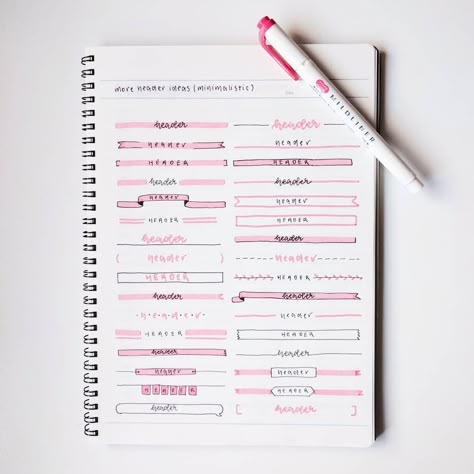 more header ideas (minimalistic)
header
HEADER
HEADER
header
header
HEADER
header
HEADER
HEADER
header
h·e·a·d·e·r
HEADER
header
HEADER
HEADER
header
header
HEADER
HEADER
header
HEADER
HEADER
header
header
HEADER
header
HEADER
HEADER
header
HEADER
HEADER
header
MILDLINER